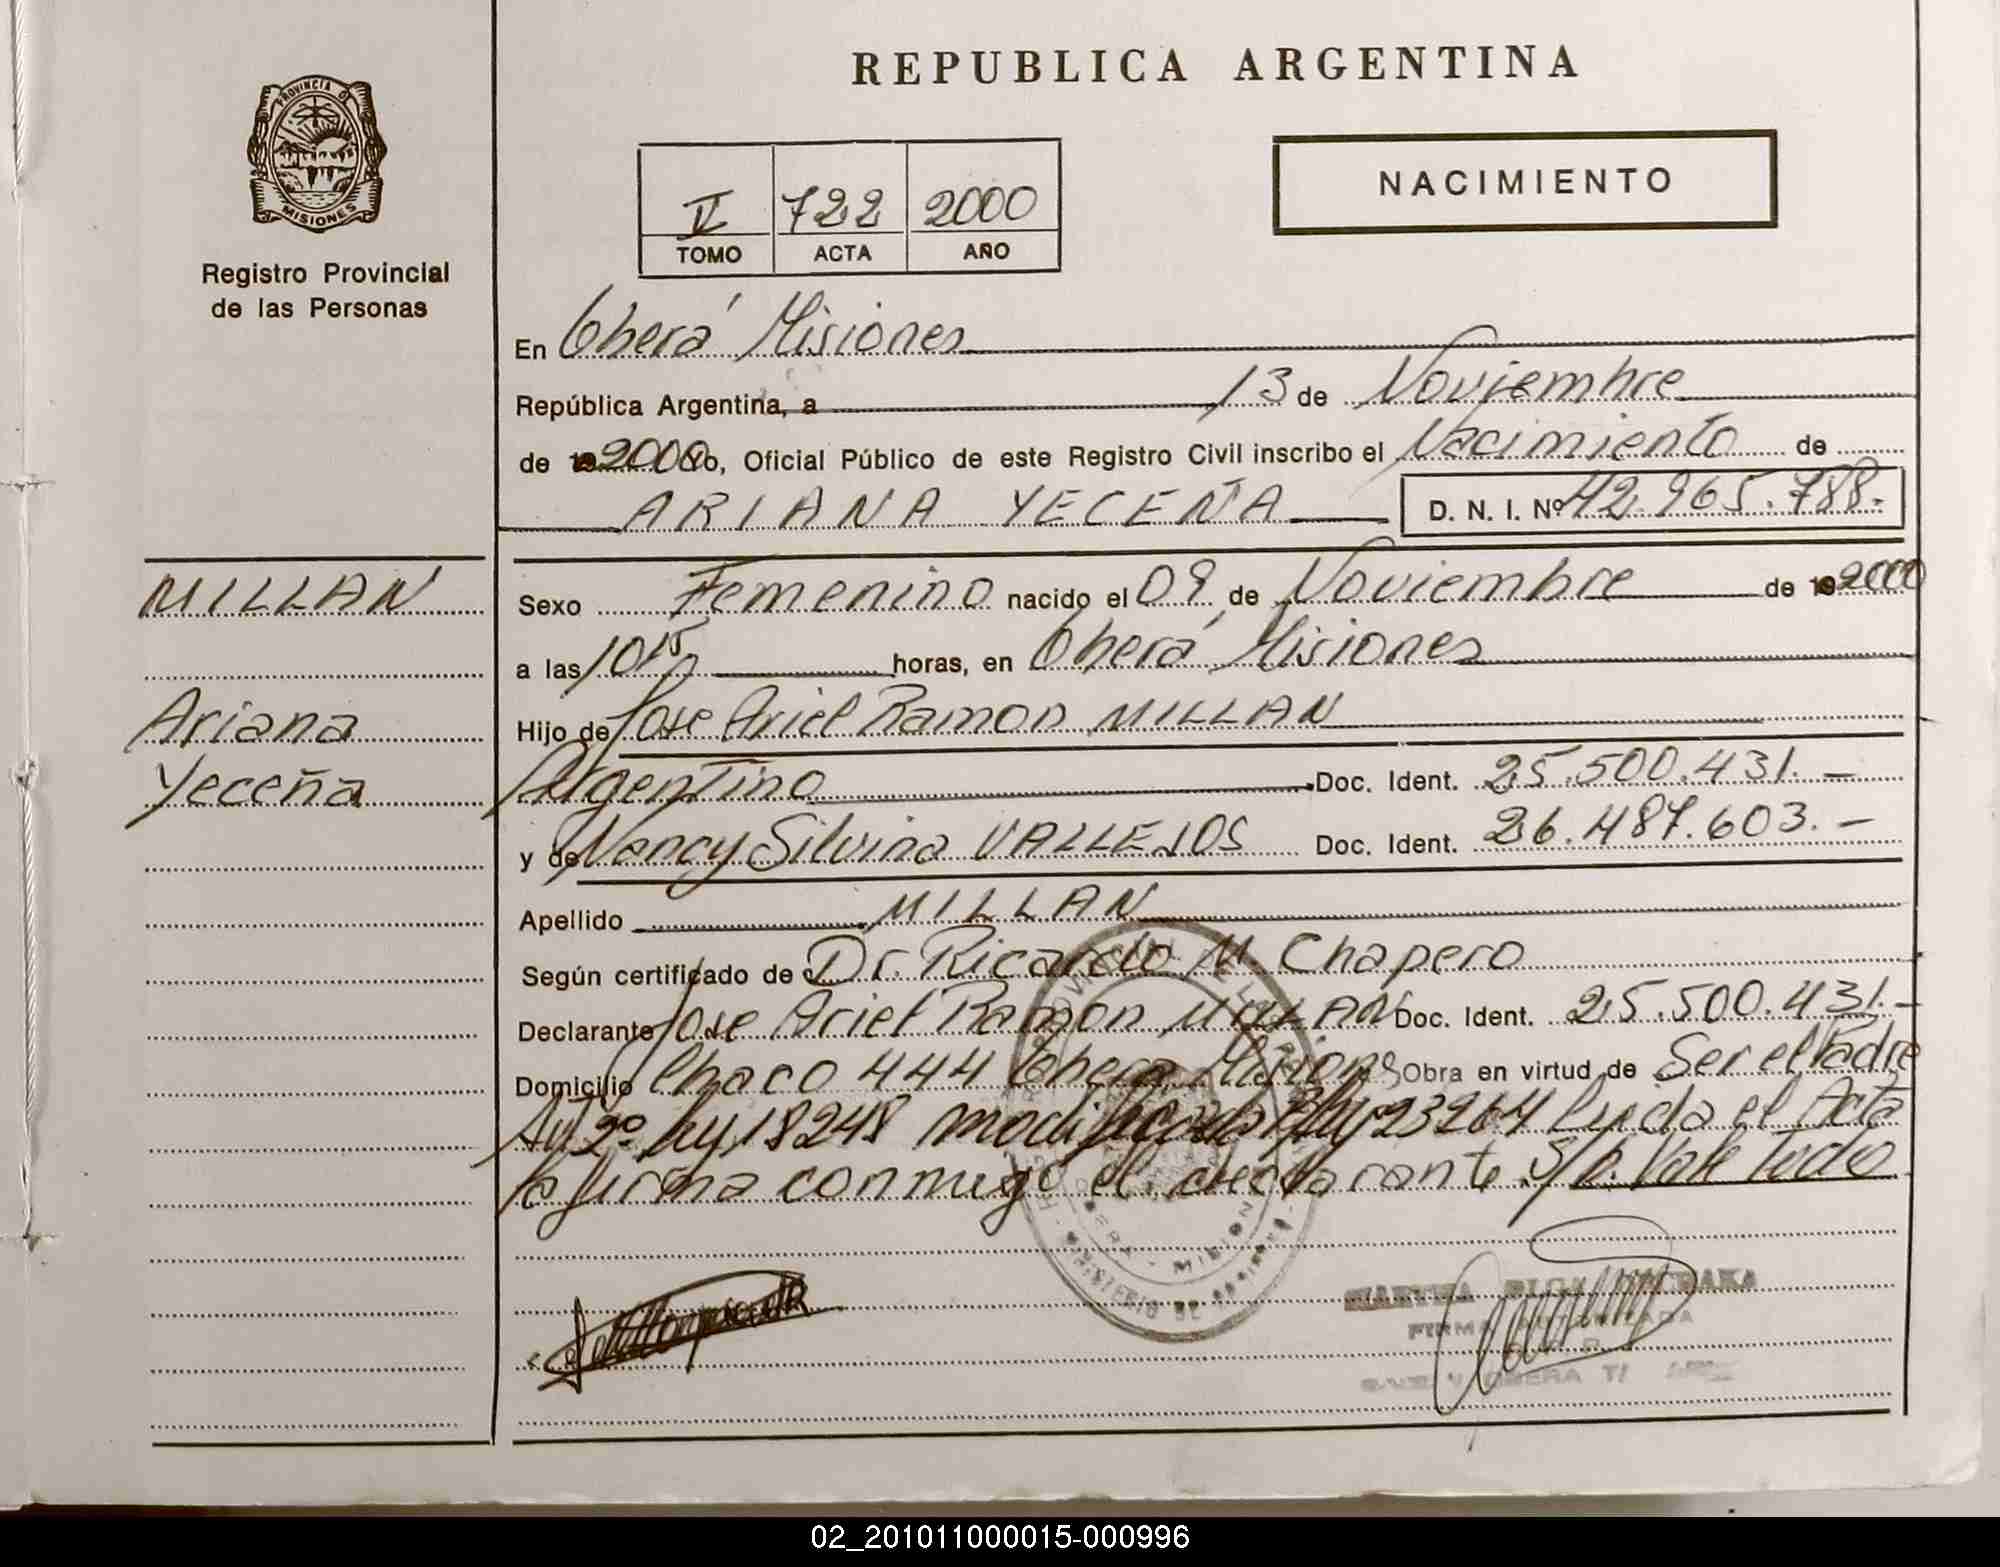 REPUBLICA ARGENTINA
PROVINCIA DE
MISIONES
Registro Provincial
de las Personas
V 722 2000
TOMO ACTA AÑO
NACIMIENTO
En Oberá Misiones
República Argentina, a 13 de Noviembre
de 2000 Yo, Oficial Público de este Registro Civil inscribo el Nacimiento de
ARIANA YECEÑA D. N. I. Nº 42.965.788.-
MILLAN
Ariana
Yeceña
Sexo Femenino nacido el 09 de Noviembre de 2000
a las 10 15 horas, en Oberá Misiones
Hijo de Jose Ariel Ramon MILLAN
Argentino Doc. Ident. 25.500.431.-
y de Nancy Silvina VALLEJOS Doc. Ident. 26.487.603.-
Apellido MILLAN
Según certificado de Dr. Ricardo M Chapero
Declarante Jose Ariel Ramon MILLAN Doc. Ident. 25.500.431.-
Domicilio Chaco 444 Oberá Misiones Obra en virtud de Ser el Padre
Art 2º ley 18248 modificado P/ley 23264 Leida el Acta
la firma conmigo el declarante S/b. Vale Todo
MARTHA
FIRMA AUTORIZADA
OBERA
02_201011000015-000996